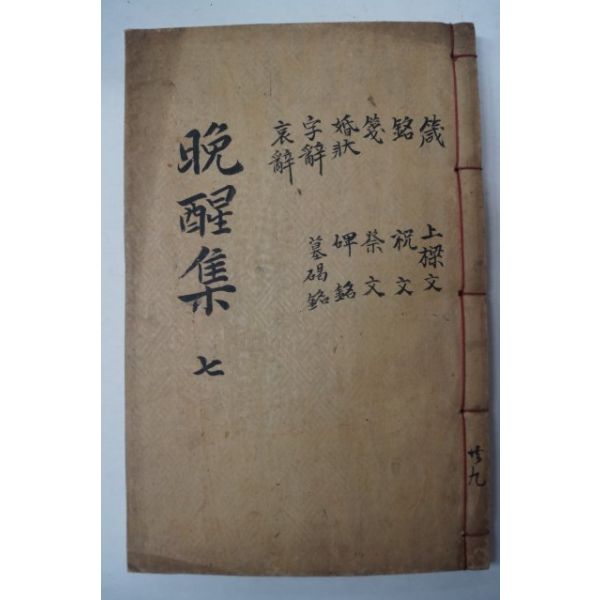 晚醒集 七
箴
銘
箋
婚狀
字辭
哀辭
上樑文
祝文
祭文
碑銘
墓碣銘
共九